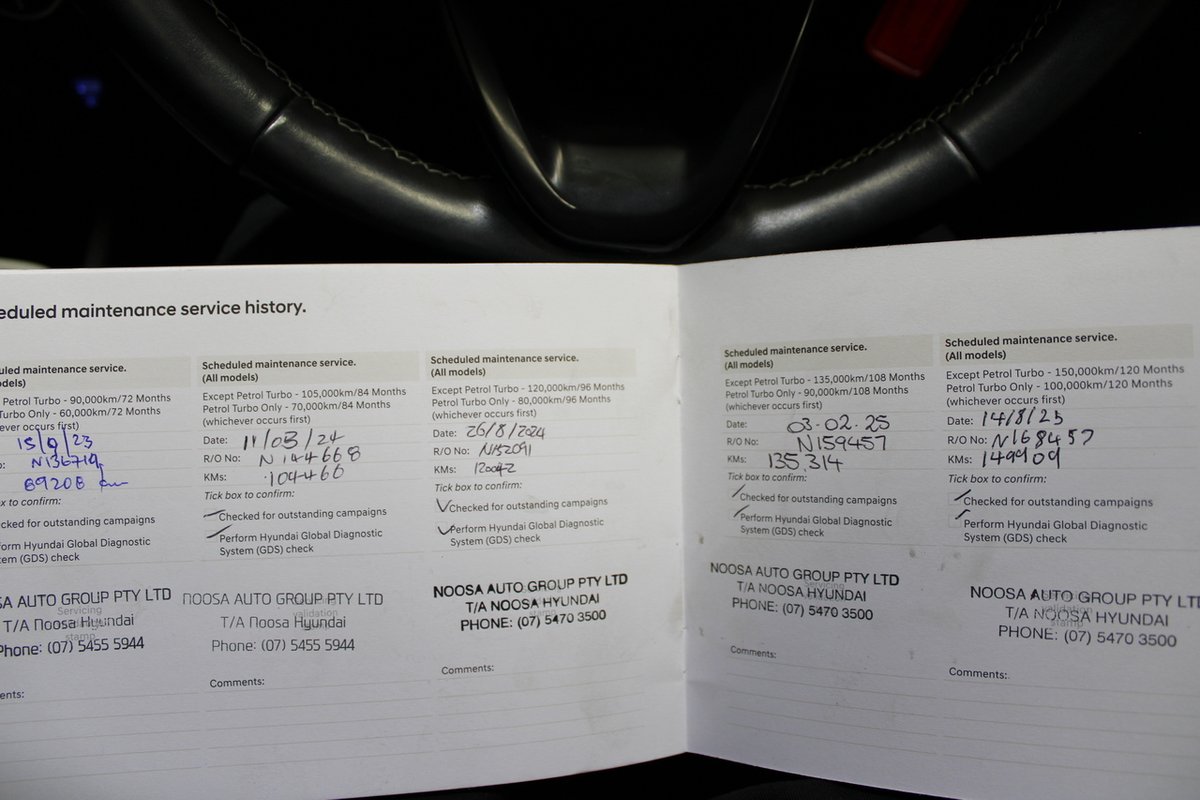 eduled maintenance service history.
uled maintenance service.
odels)
Petrol Turbo - 90,000km/72 Months
Turbo Only - 60,000km/72 Months
ever occurs first)
15/9/23
o: N136719
89208 km
ox to confirm:
cked for outstanding campaigns
form Hyundai Global Diagnostic
tem (GDS) check
SA AUTO GROUP PTY LTD
Servicing
T/A Noosa Hyundai
stamp
Phone: (07) 5455 5944
ents:
Scheduled maintenance service.
(All models)
Except Petrol Turbo - 105,000km/84 Months
Petrol Turbo Only - 70,000km/84 Months
(whichever occurs first)
Date: 11/03/24
R/O No: N144668
KMs: 104466
Tick box to confirm:
Checked for outstanding campaigns
Perform Hyundai Global Diagnostic
System (GDS) check
NOOSA AUTO GROUP PTY LTD
validation
T/A Noosa Hyundai
Phone: (07) 5455 5944
Comments:
Scheduled maintenance service.
(All models)
Except Petrol Turbo - 120,000km/96 Months
Petrol Turbo Only - 80,000km/96 Months
(whichever occurs first)
Date: 26/8/2024
R/O No: N152091
KMs: 120042
Tick box to confirm:
Checked for outstanding campaigns
Perform Hyundai Global Diagnostic
System (GDS) check
NOOSA AUTO GROUP PTY LTD
T/A NOOSA HYUNDAI
PHONE: (07) 5470 3500
Comments:
Scheduled maintenance service.
(All models)
Except Petrol Turbo - 135,000km/108 Months
Petrol Turbo Only - 90,000km/108 Months
(whichever occurs first)
Date: 03-02-25
R/O No: N159457
KMs: 135,314
Tick box to confirm:
Checked for outstanding campaigns
Perform Hyundai Global Diagnostic
System (GDS) check
NOOSA AUTO GROUP PTY LTD
Servicing
T/A NOOSA HYUNDAI
PHONE: (07) 5470 3500
Comments:
Scheduled maintenance service.
(All models)
Except Petrol Turbo - 150,000km/120 Months
Petrol Turbo Only - 100,000km/120 Months
(whichever occurs first)
Date: 14/8/25
R/O No: N168457
KMs: 149909
Tick box to confirm:
Checked for outstanding campaigns
Perform Hyundai Global Diagnostic
System (GDS) check
NOOSA AUTO GROUP PTY LT
validation
T/A NOOSA HYUNDAI
stamp
PHONE: (07) 5470 3500
Comments: